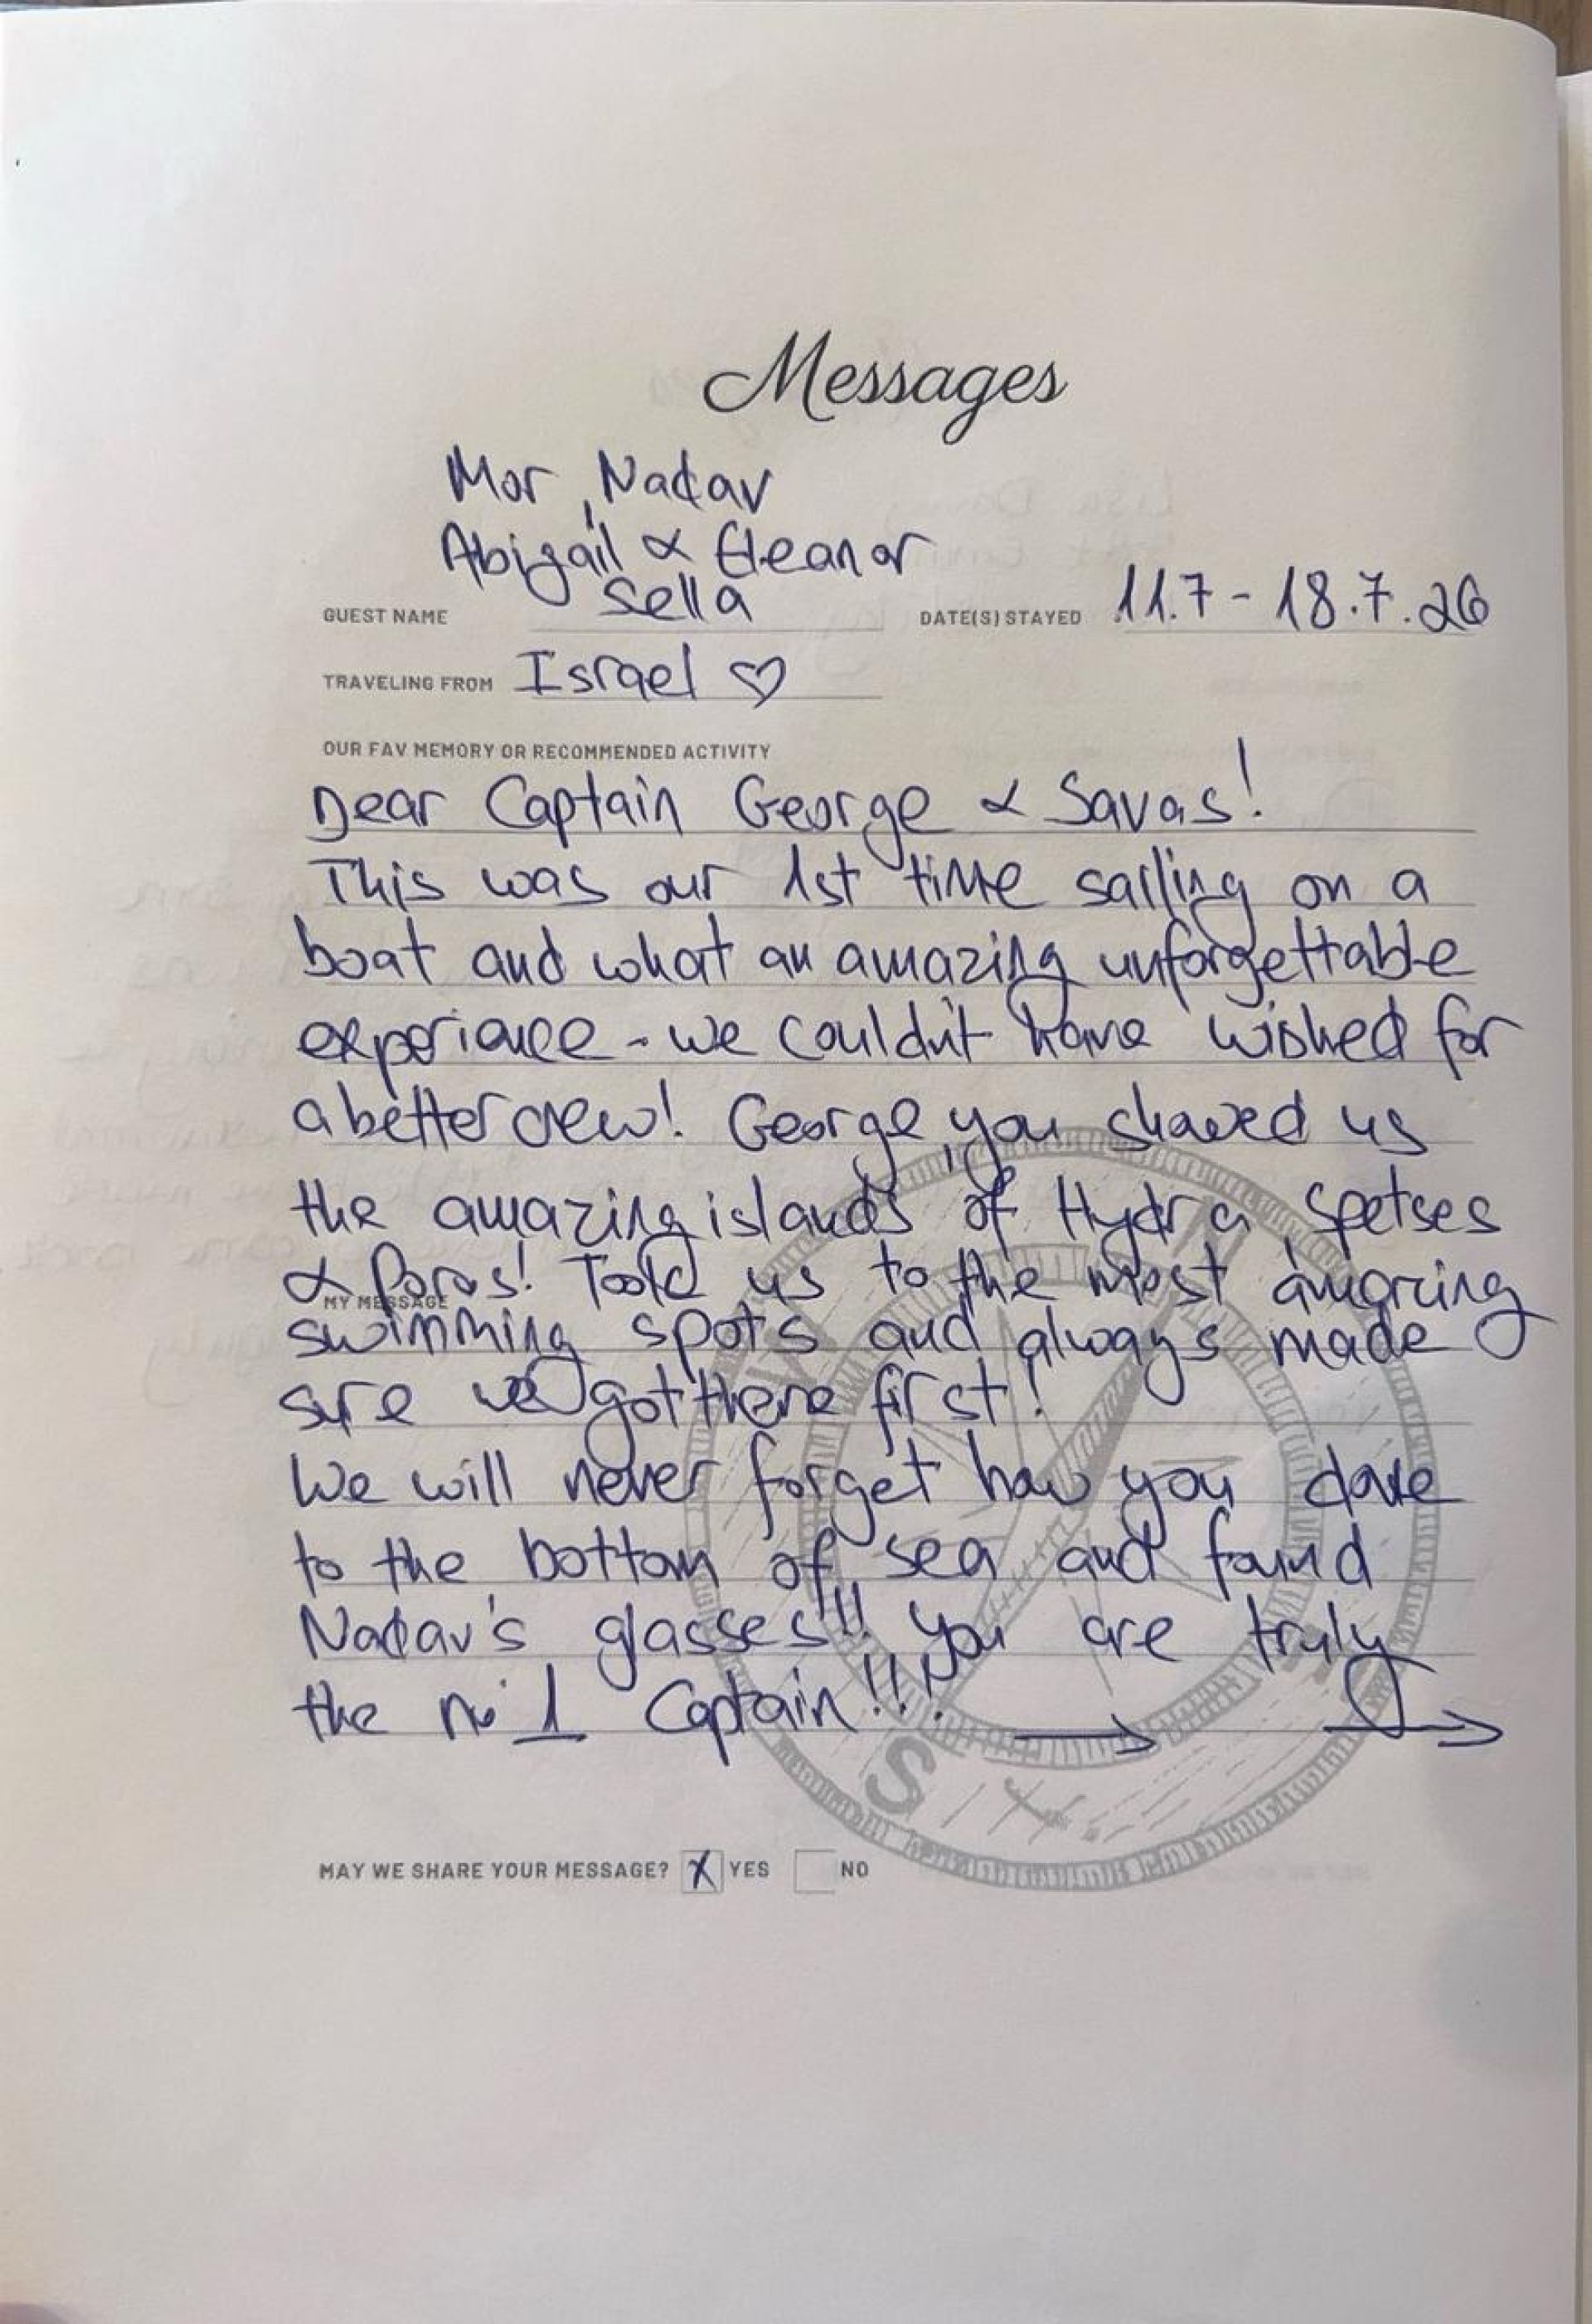 Messages
Mor, Nadav
Abigail & Eleanor
Sella
GUEST NAME
DATE(S) STAYED 11.7 - 18.7.26
TRAVELING FROM Israel ♡
OUR FAV MEMORY OR RECOMMENDED ACTIVITY
Dear Captain George & Savas!
This was our 1st time sailing on a
boat and what an amazing unforgettable
experience - we couldn't have wished for
a better crew! George, you showed us
the amazing islands of Hydra, Spetses
& Poros! Took us to the most amazing
MY MESSAGE
swimming spots and always made
sure we got there first!
We will never forget how you dove
to the bottom of sea and found
Nadav's glasses!!! You are truly
the no 1 Captain!!! → →
S
MAY WE SHARE YOUR MESSAGE? X YES NO